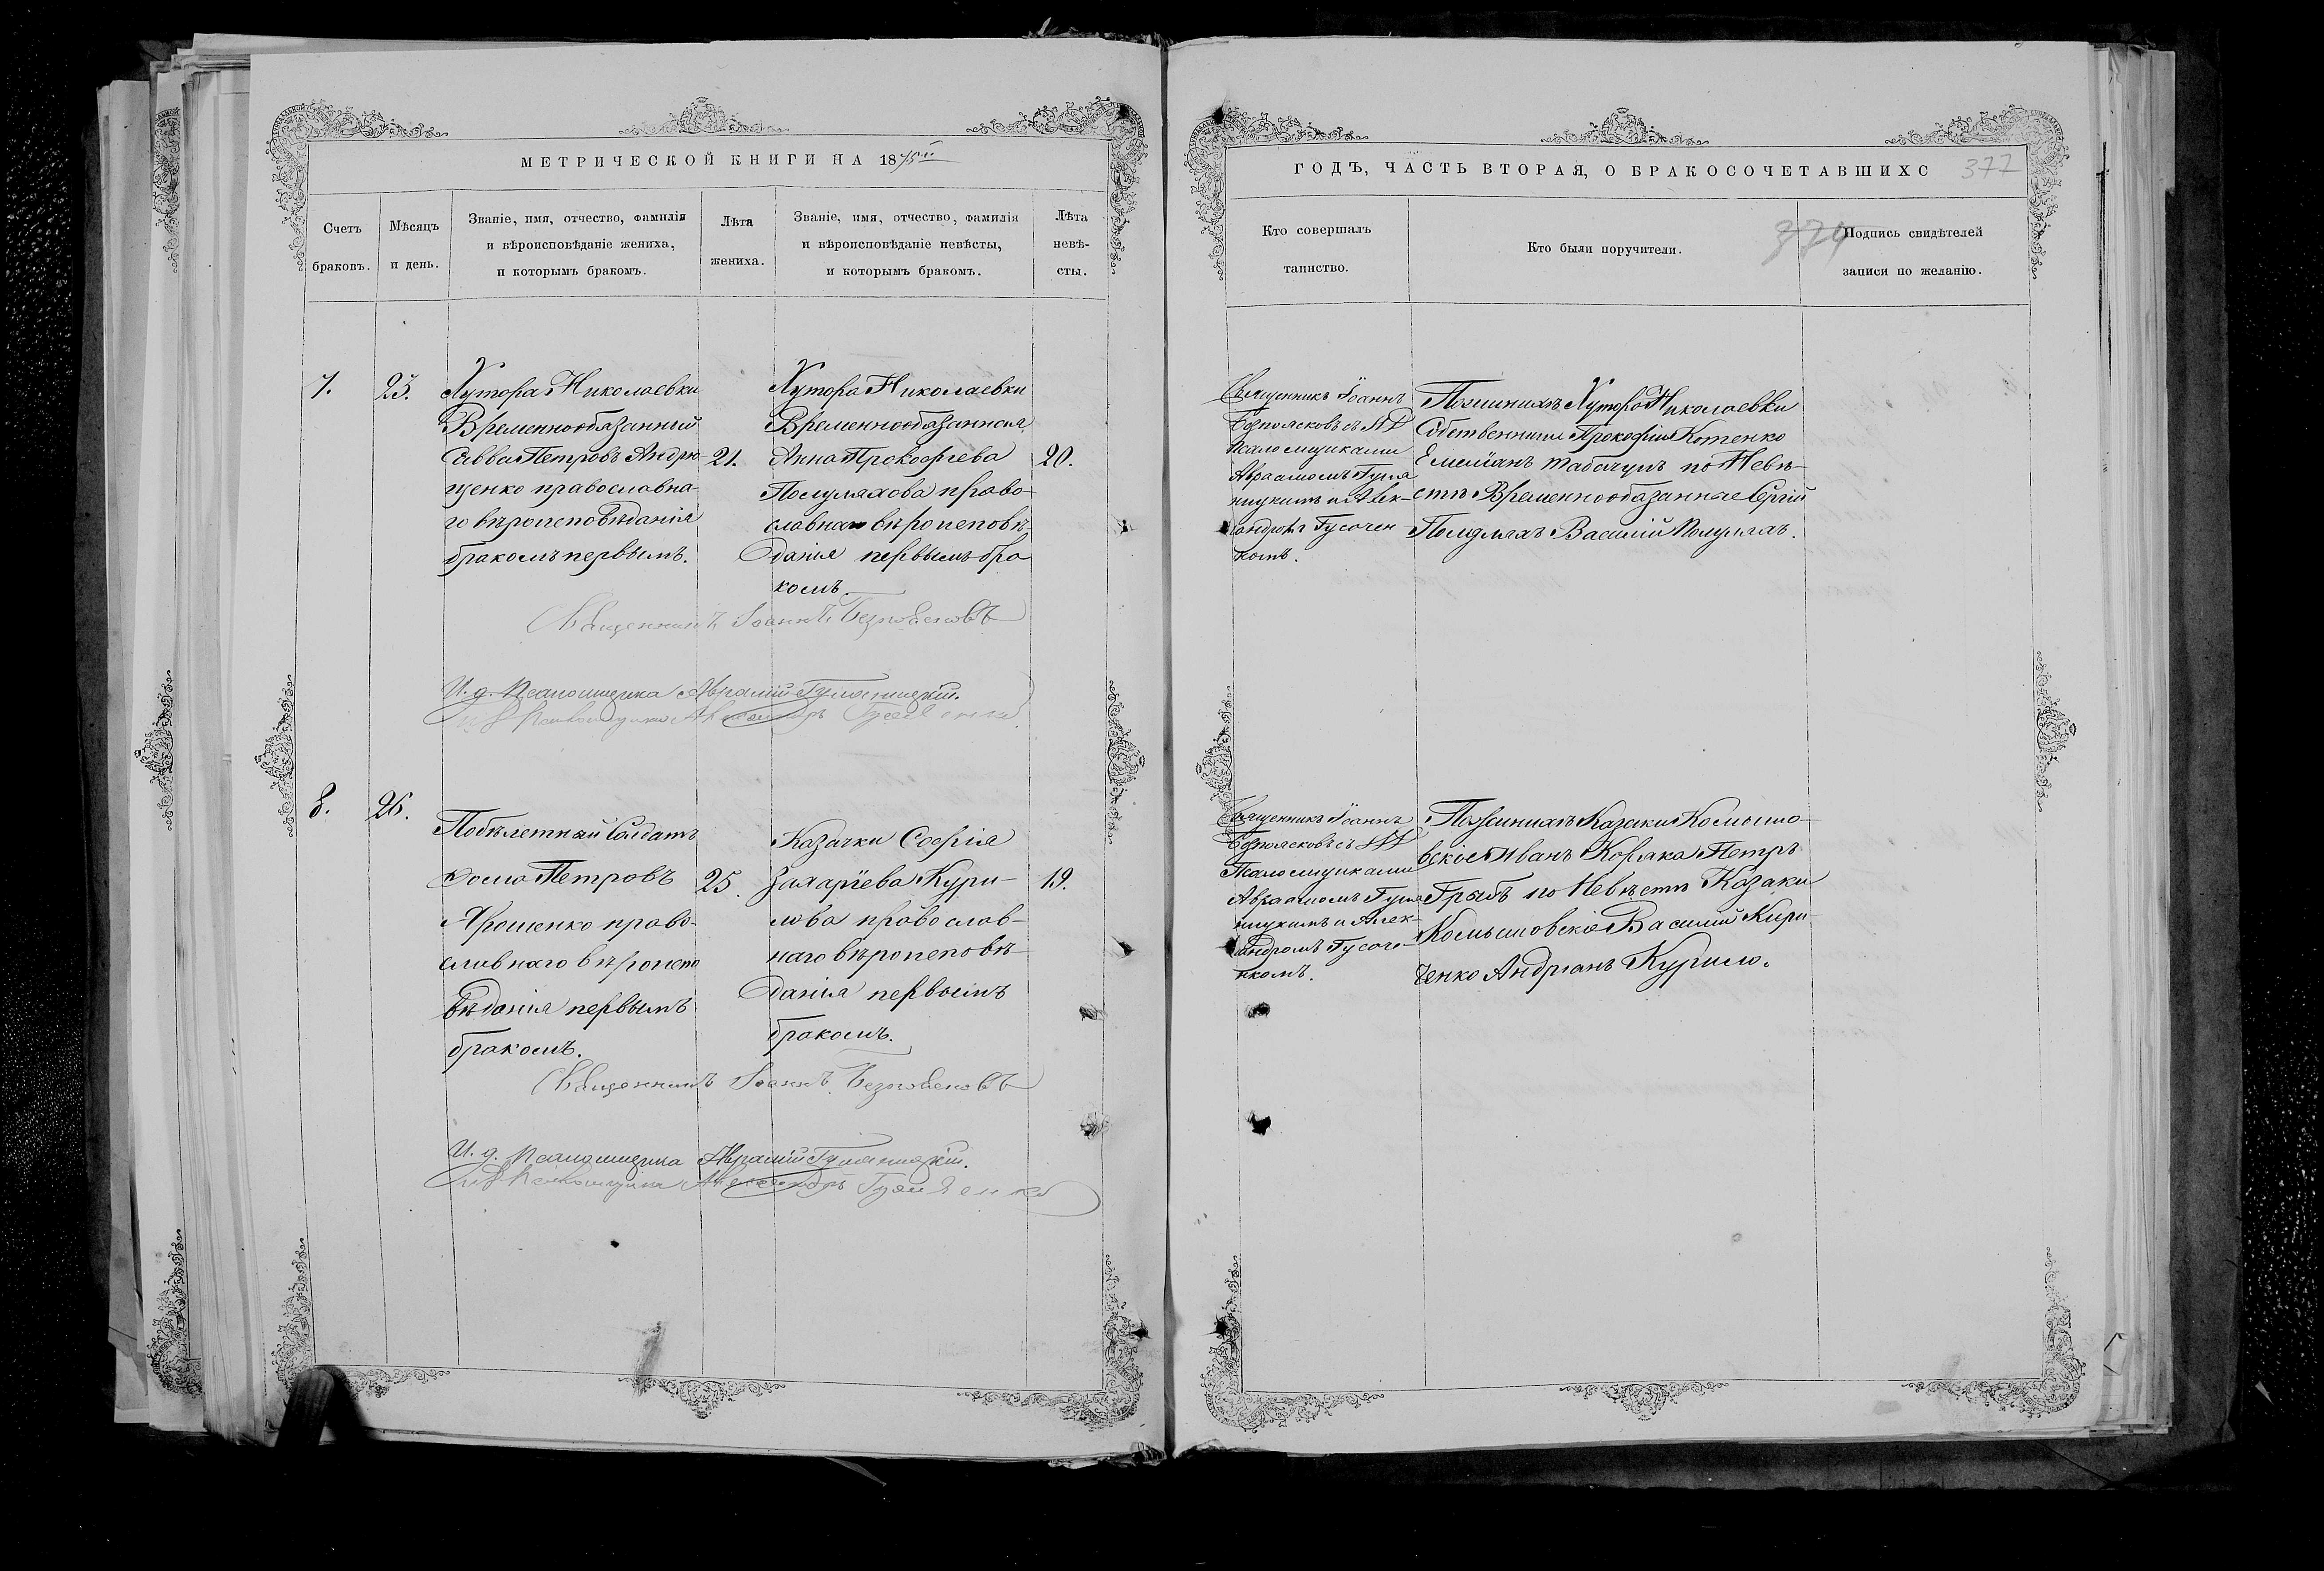 МЕТРИЧЕСКОЙ КНИГИ НА 1875
Счетъ браковъ.
Мѣсяцъ и день.
Званіе, имя, отчество, фамилія
и вѣроисповѣданіе жениха,
и которымъ бракомъ.
Лѣта жениха.
Званіе, имя, отчество, фамилія
и вѣроисповѣданіе невѣсты,
и которымъ бракомъ.
Лѣта невѣ-
сты.
7.
23.
Хутора Николаевки
Временнообязанный
Савва Петровъ Андрю-
щенко православна-
го вѣроисповѣданія
бракомъ первымъ.
21.
Хутора Николаевки
Временнообязанная
Анна Прокофіева
Полуляхова право-
славнаго вѣроисповѣ-
данія первымъ бра
комъ.
20.
Священникъ Іоаннъ Безпоясковъ
И. д. Псаломщика Аврамій
Александръ Гусаченко
8.
26.
Побѣлетный Солдатъ
Фома Петровъ
Ярошенко право-
славнаго вѣроиспо
вѣданія первымъ
бракомъ.
25.
Казачки Софія
Захаріева Кури-
лова православ-
наго вѣроисповѣ-
данія первымъ
бракомъ.
19.
Священникъ Іоаннъ Безпоясковъ
И. д. Псаломщика Аврамій
Александръ Гусаченко
ГОДЪ, ЧАСТЬ ВТОРАЯ, О БРАКОСОЧЕТАВШИХС
377
374
Кто совершалъ
таинство.
Кто были поручители.
Подпись свидѣтелей
записи по желанію.
Священникъ Іоаннъ
Безпоясковъ съ
Псаломщиками
Авраамомъ
и Алек-
андромъ Гусачен-
комъ.
По женихѣ Хутора Николаевки
Собственники Прокофій Котенко
Емеліанъ Табачунъ по Невѣ-
стѣ Временнообязанные Сергій
Полуляхъ Василій Полуляхъ.
Священникъ Іоаннъ
Безпоясковъ съ
Псаломщиками
Авраамомъ
и Алек-
андромъ Гусаче-
нкомъ.
По женихѣ Казаки Комышо-
вскіе Иванъ Коряка Петръ
Грабъ по Невѣстѣ Казаки
Комышовскіе Василій Кири
ченко Андріанъ Курило.